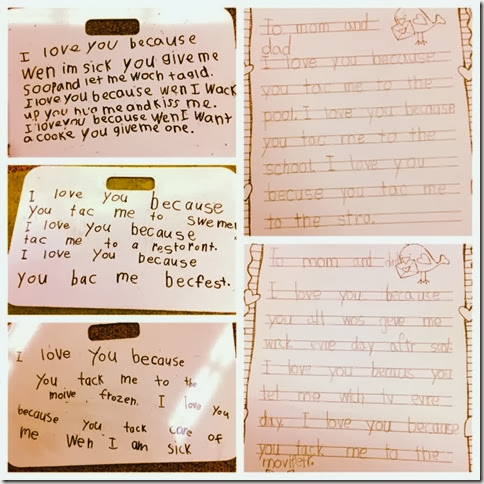 I love you because
Wen im sick you give me
Soopand let me woch tagld.
I love you because wen I wack
up you hug me and kiss me.
I love you because wen I want
a cooke you give me one.
I love you because
you tac me to swemen
I love you because
tac me to a restoront.
I love you because
you bac me becfest.
I love you because
you tack me to the
moive frozen. I love you
because you tack care of
me Wen I am sick
To mom and
dad
I love you because
you tac me to the
pool. I love you because
you tac me to the
school. I love you
becuse you tac me
to the stra.
To mom and
I love you because
you all wos geve me
evre day aftr
I love you you
let me wich tv evre
day. I love you because
you tack me to the